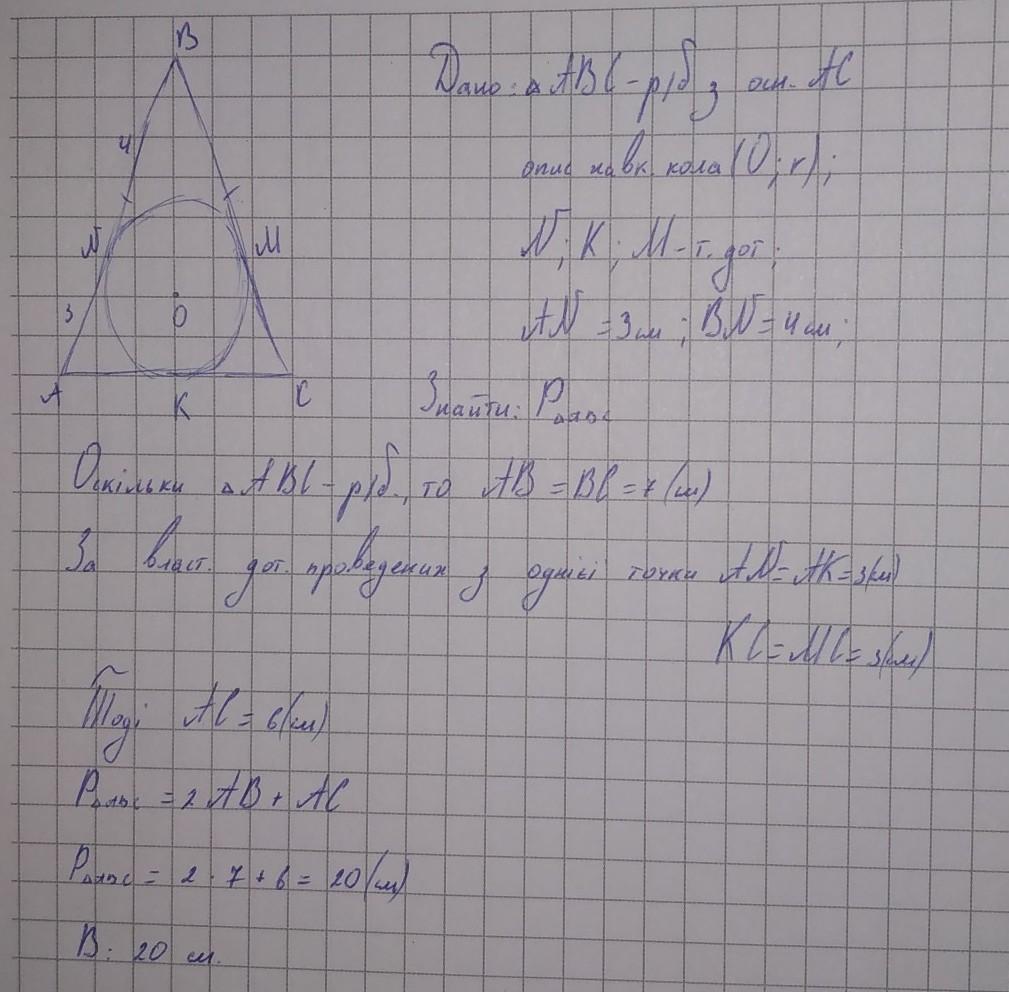 B
Дано: △ABC - р/б з осн. AC
4
опис навк. кола (O; r);
N
M
N; K; M - т. дот;
3
O
AN = 3см; BN = 4см;
A
K
C
Знайти: P△ABC
Оскільки △ABC - р/б., то AB = BC = 7(см)
За власт. дот. проведених з однієї точки AN = AK = 3(см)
KC = MC = 3(см)
Тоді AC = 6(см)
P△ABC = 2AB + AC
P△ABC = 2 · 7 + 6 = 20(см)
В: 20 см.